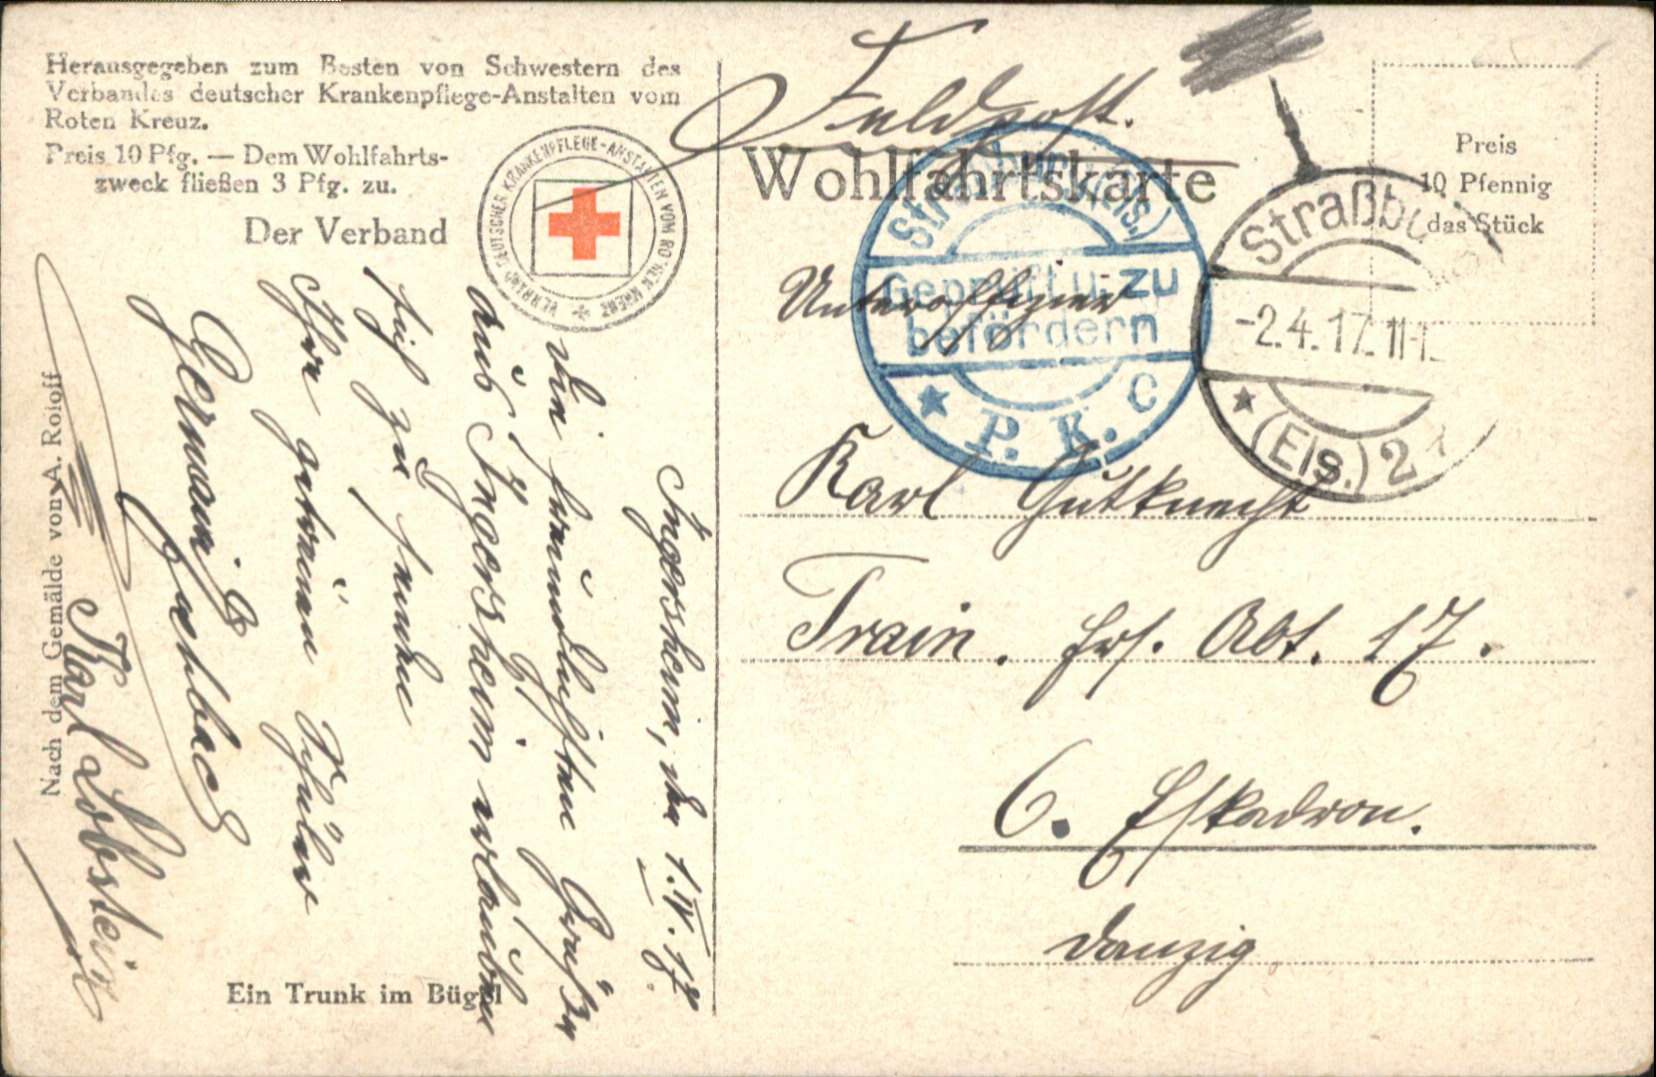 Herausgegeben zum Besten von Schwestern des
Verbandes deutscher Krankenpflege-Anstalten vom
Roten Kreuz.
Preis 10 Pfg. — Dem Wohlfahrts-
zweck fließen 3 Pfg. zu.
Der Verband
VERBAND DEUTSCHER KRANKENPFLEGE-ANSTALTEN VOM ROTEN KREUZ
Ingersheim, den 1.IV.17.
Die freundlichsten Grüße
aus Ingersheim erlauben
sich zu senden
Ihre getreuen Schüler
Germain
Karl Lobstein
Nach dem Gemälde von A. Roloff
Ein Trunk im Bügel
Feldpost.
Wohlfahrtskarte
Preis
10 Pfennig
das Stück
Straßburg (Els.)
Geprüft u. zu
befördern
P. K. C
Straßbu
-2.4.17. 11-1
(Els.) 2
Unteroffizier
Karl Gutknecht
Train. Ers. Abt. 17.
6. Eskadron.
Danzig